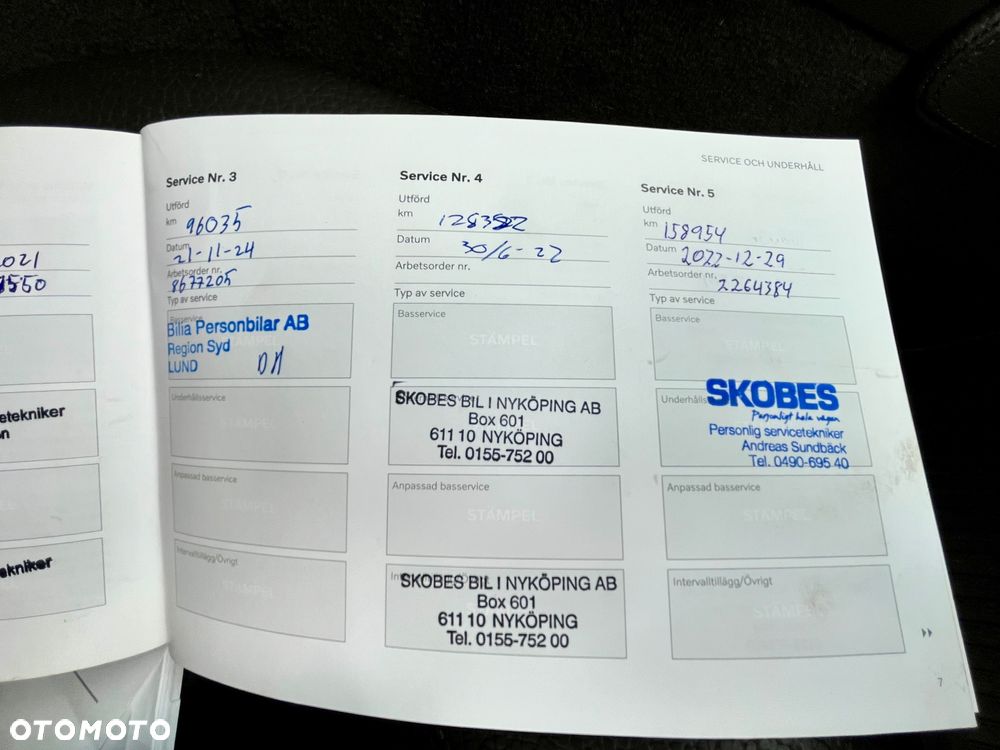 021
7550
etekniker
on
ekniker
SERVICE OCH UNDERHÅLL
Service Nr. 3
Utförd
km 96035
Datum 21-11-24
Arbetsorder nr. 8677205
Typ av service
Basservice
STÄMPEL
Bilia Personbilar AB
Region Syd
LUND
Underhållsservice
STÄMPEL
Anpassad basservice
STÄMPEL
Intervalltillägg/Övrigt
STÄMPEL
Service Nr. 4
Utförd
km
Datum 30/6-22
Arbetsorder nr.
Typ av service
Basservice
STÄMPEL
SKOBES BIL I NYKÖPING AB
Box 601
611 10 NYKÖPING
Tel. 0155-752 00
Anpassad basservice
STÄMPEL
SKOBES BIL I NYKÖPING AB
Box 601
611 10 NYKÖPING
Tel. 0155-752 00
Service Nr. 5
Utförd
km 158954
Datum 2022-12-29
Arbetsorder nr. 2264384
Typ av service
Basservice
STÄMPEL
Underhålls
SKOBES
Personligt hela vägen
Personlig servicetekniker
Andreas Sundbäck
Tel. 0490-695 40
Anpassad basservice
STÄMPEL
Intervalltillägg/Övrigt
STÄMPEL
7
OTOMOTO